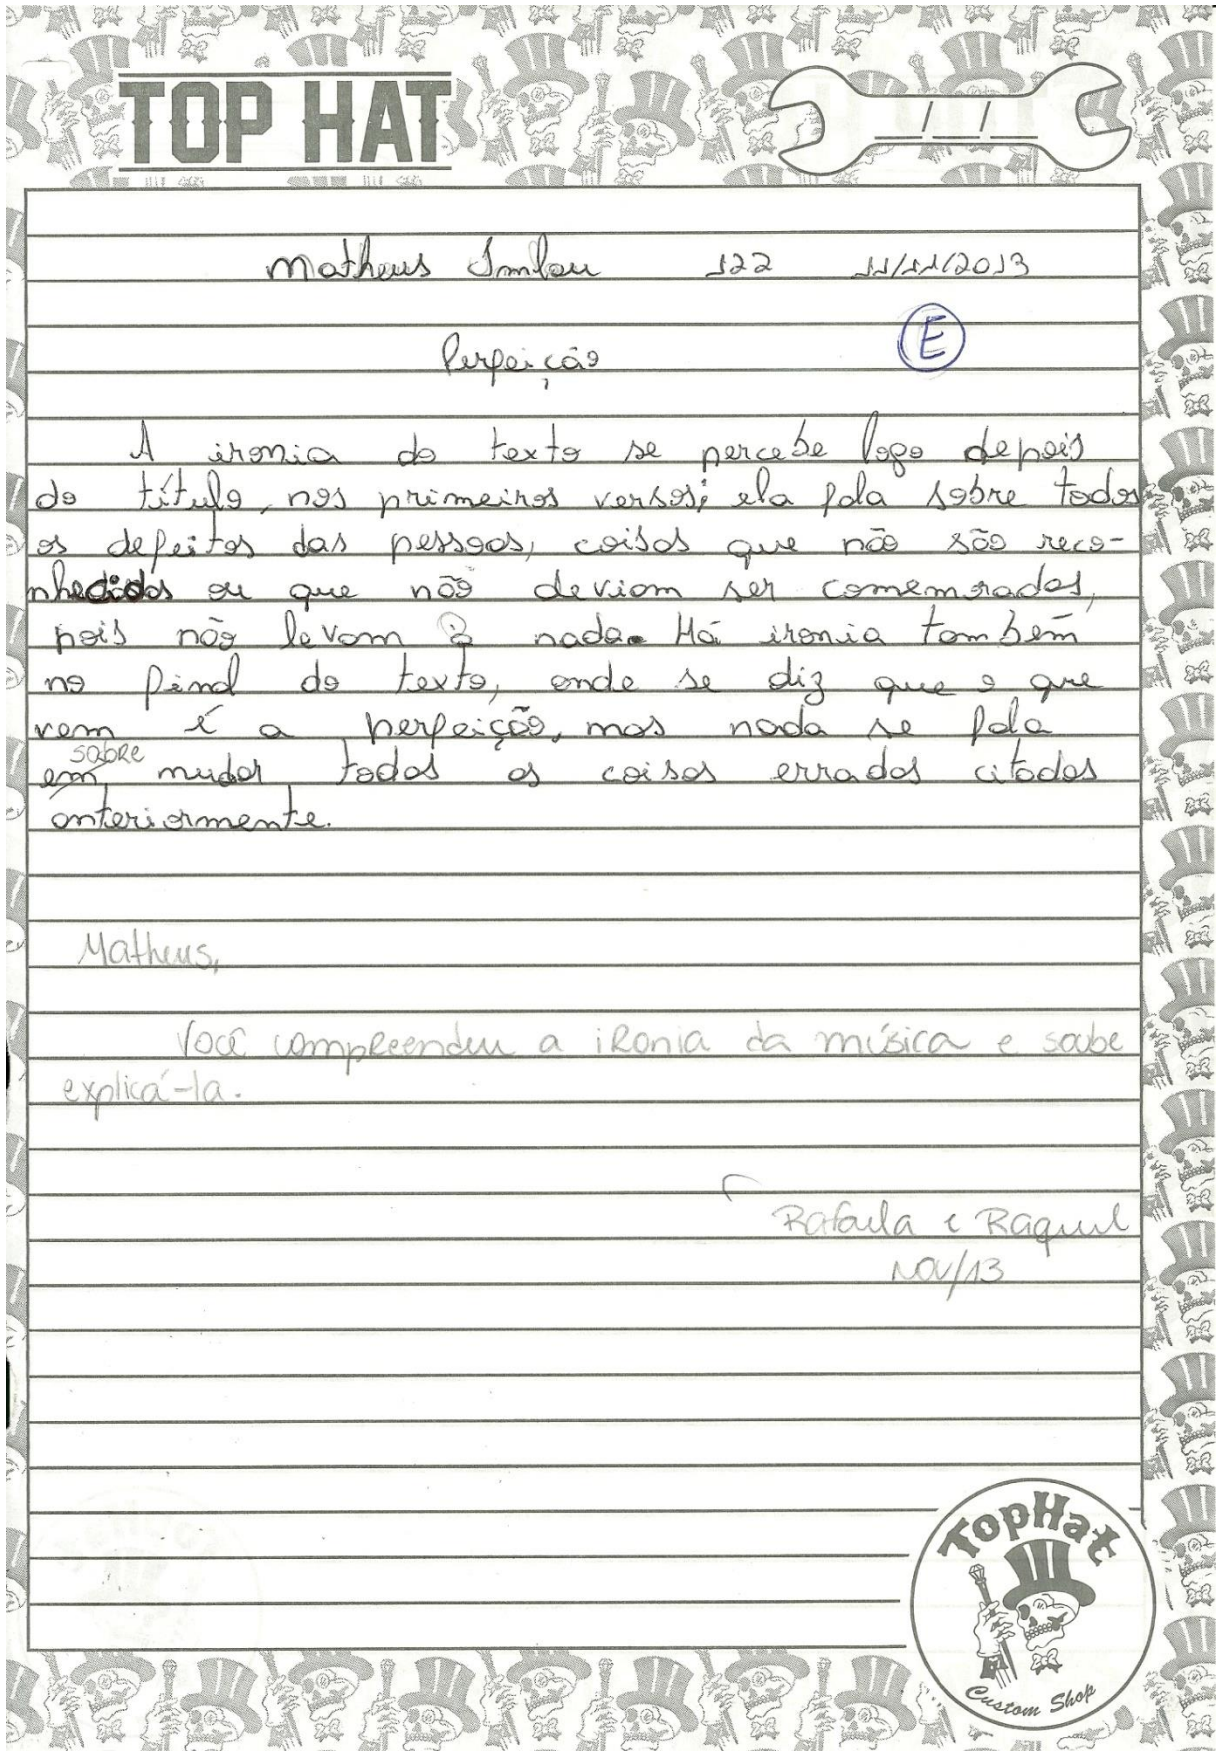 TOP HAT
Matheus 122 11/11/2013
E
Perfeição
A ironia do texto se percebe logo depois
do título, nos primeiros versos; ela fala sobre todos
os defeitos das pessoas, coisas que não são reco-
nhecidas ou que não deviam ser comemoradas,
pois não levam a nada. Há ironia também
no final do texto, onde se diz que o que
vem é a perfeição, mas nada se fala
sobre
em mudar todas as coisas erradas citadas
anteriormente.
Matheus,
Você compreendeu a ironia da música e soube
explicá-la.
Rafaela e Raquel
nov/13
TopHat
Custom Shop